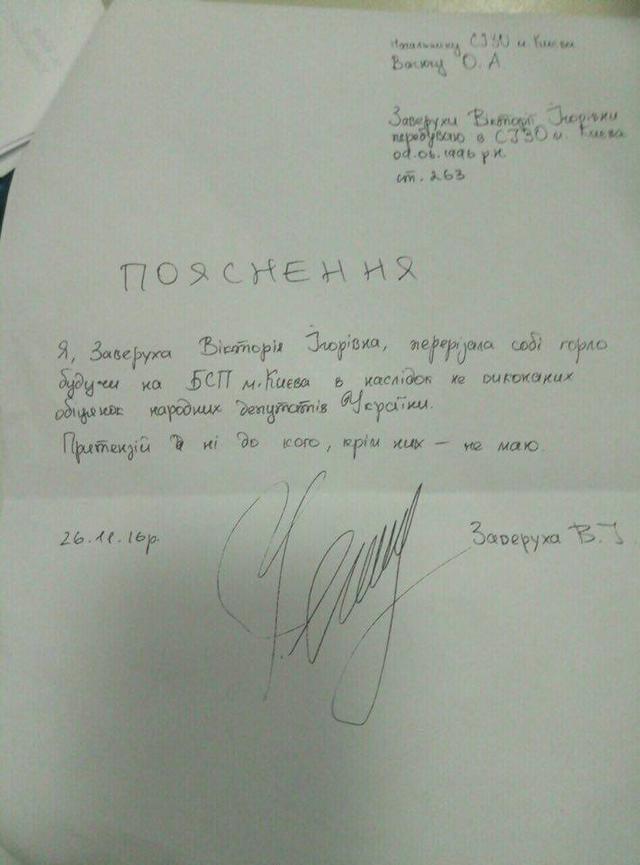 Начальнику СІЗО м. Києва
О. А
Заверухи Вікторії Ігорівни
перебуваю в СІЗО м. Києва
09.06.1996 р.н
ст. 263
ПОЯСНЕННЯ
Я, Заверуха Вікторія Ігорівна, перерізала собі горло
будучи на БСП м. Києва в наслідок не виконаних
обіцянок народних депутатів України.
Притензій ні до кого, крім них – не маю.
26.11.16р.
Заверуха В. І